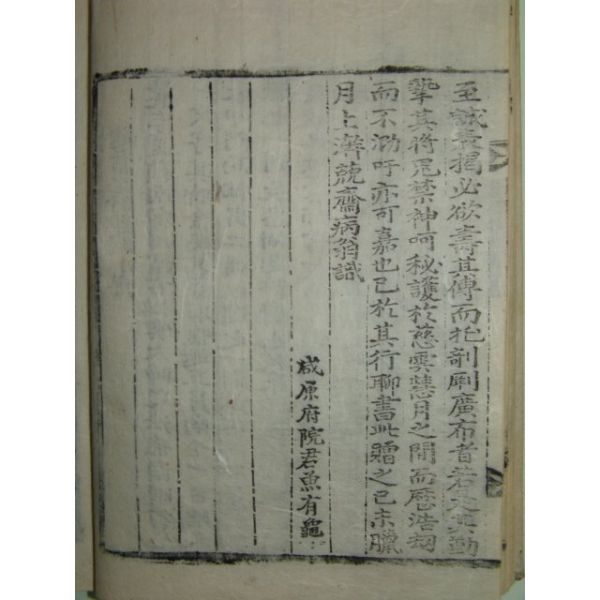 至誠表揭必欲壽其傳而托剞劂廣布者若是其勤
摯其將鬼禁神呵秘護於慈雲慧月之間而歷浩刼
而不泐吁亦可嘉也已於其行聊書此贈之己未臘
月上澣兢齋病翁識
咸原府院君魚有龜